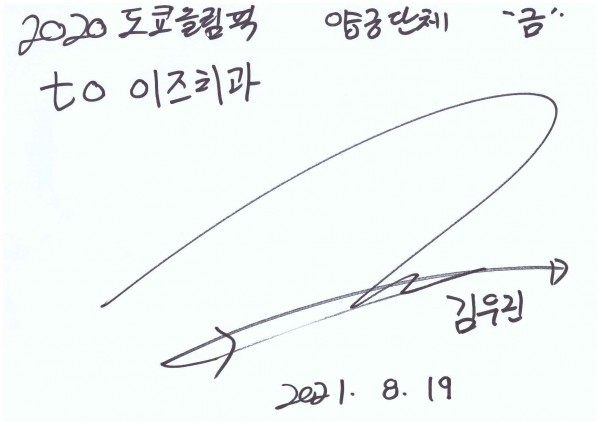 2020 도쿄올림픽 양궁단체 "금"
to 이즈치과
김우진
2021. 8. 19